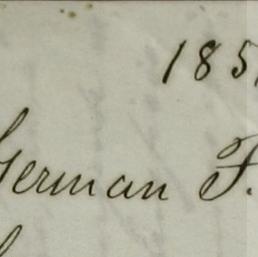 185
German F.